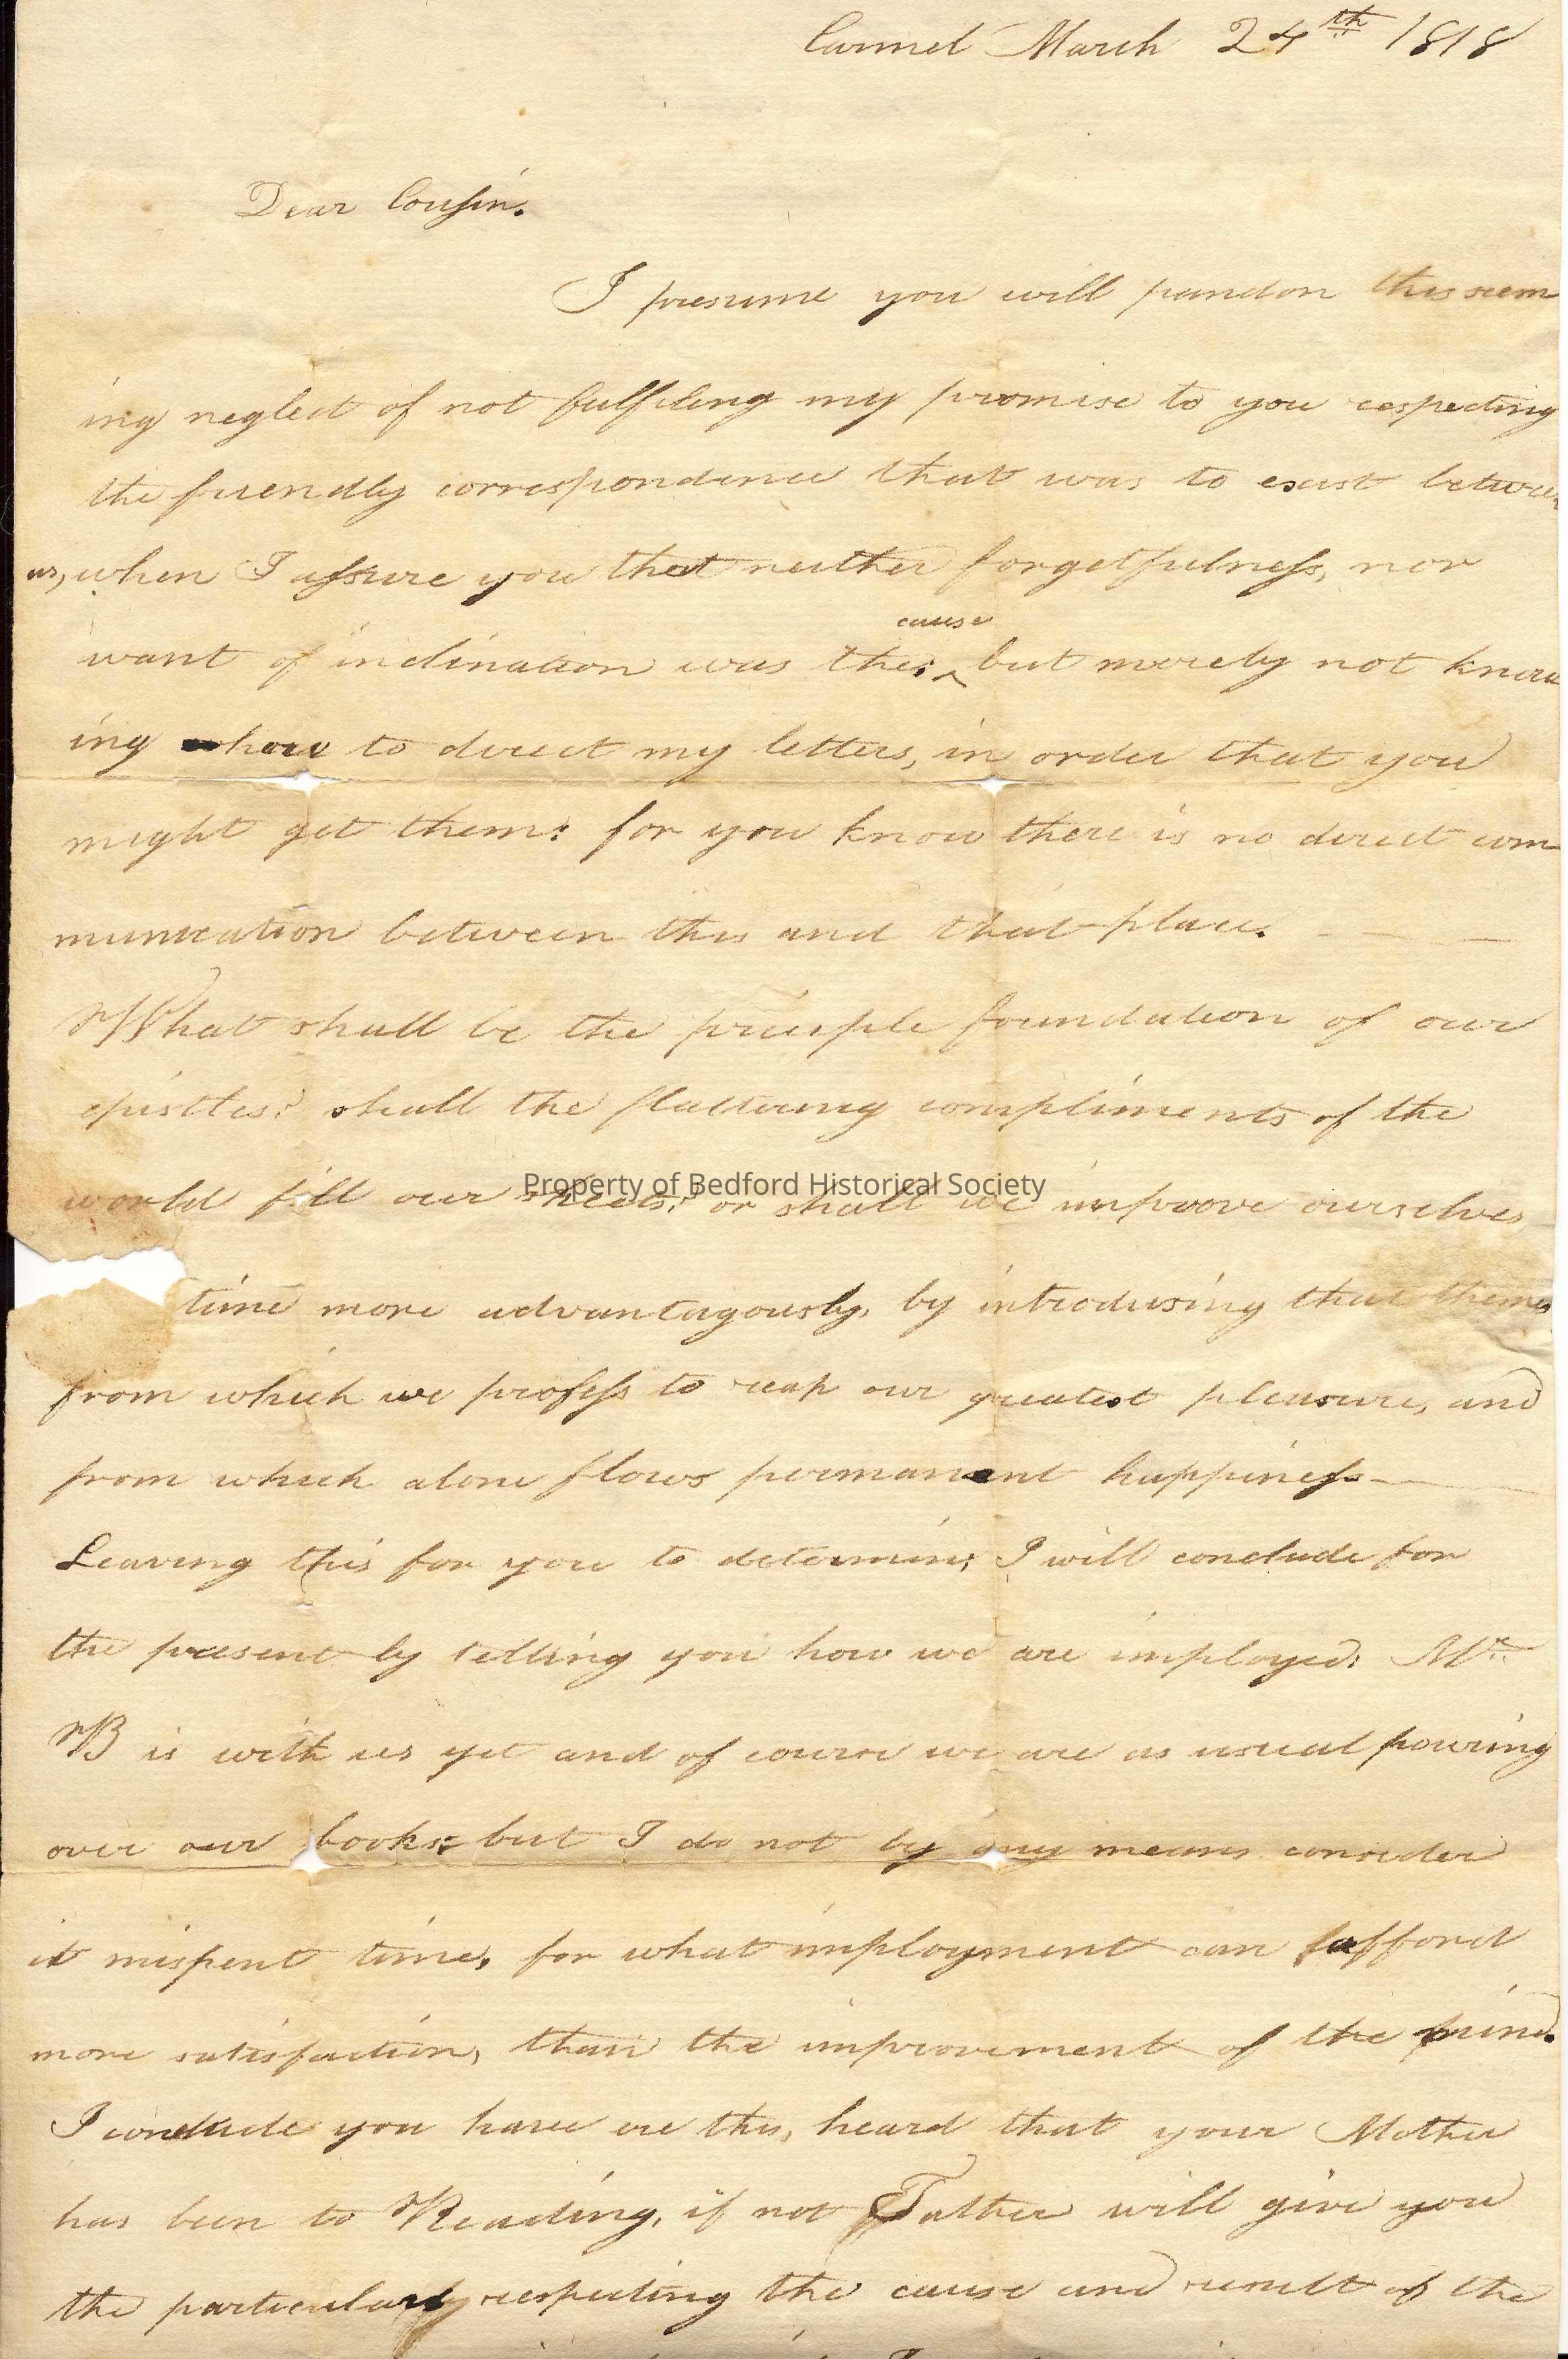 Carmel March 24th 1818
Dear Cousin.
I presume you will pardon this seem
ing neglect of not fulfiling my promise to you respecting
the friendly correspondence that was to exist between
us, when I assure you that neither forgetfulness, nor
cause
want of inclination was the; ^ but merely not know
ing how to direct my letters, in order that you
might get them: for you know there is no direct com
munication between this and that place.
What shall be the principle foundation of our
epistles? shall the flattering compliments of the
world fill our sheets? or shall we improove ourselves
Property of Bedford Historical Society
time more advantagously, by introdusing that theme
from which we profess to reap our greatest pleasure, and
from which alone flows permanent happiness—
Leaving this for you to determin; I will conclude for
the present by telling you how we are imployed: Mr
B is with us yet and of course we are as usual pouring
over our books: but I do not by any means consider
it mispent time, for what imployment can afford
more satisfaction, than the improvement of the mind.
I conclude you have ere this, heard that your Mother
has been to Reading, if not Father will give you
the particulars respecting the cause and result of the